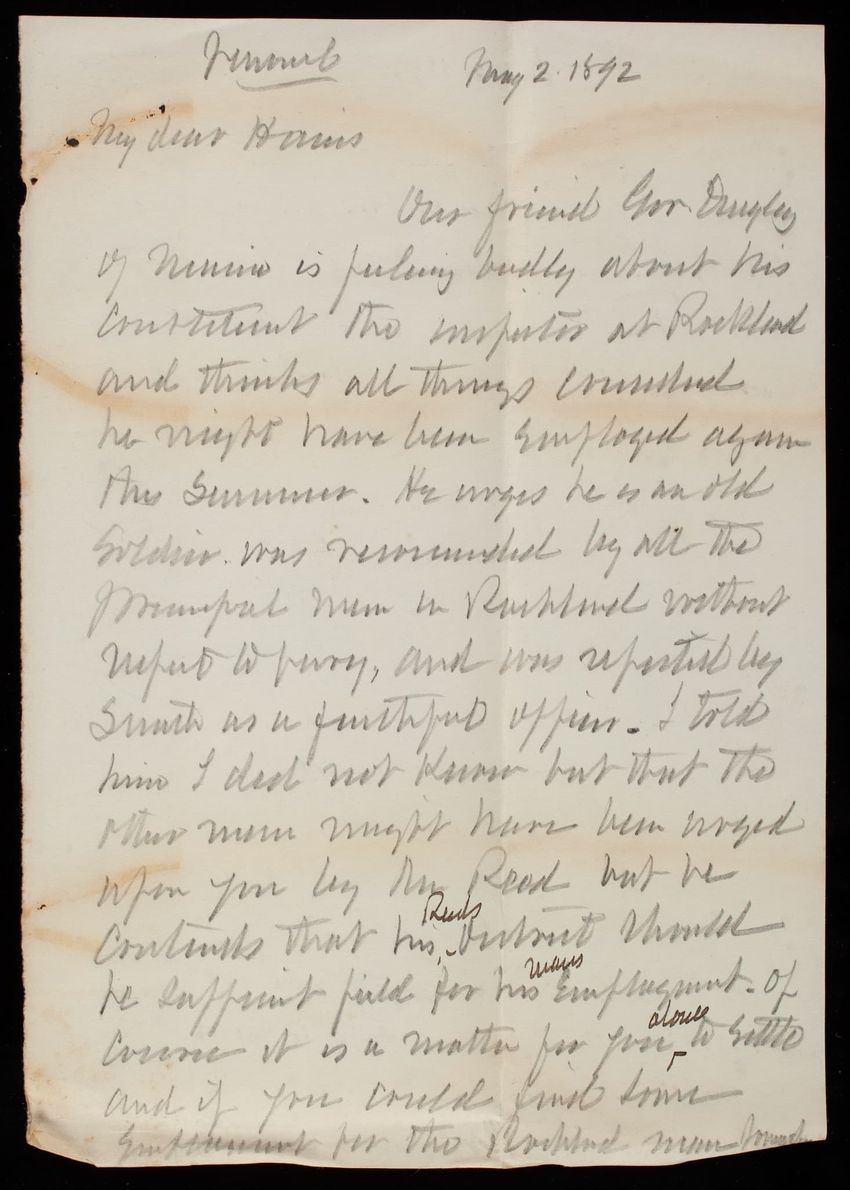 Personal
May 2. 1892
My dear Hains
Our friend Gov. Dingley
of Maine is feeling badly about his
Constituent the inspector at Rockland
and thinks all things considered
he might have been employed again
this Summer. He urges he is an old
Soldier. was recommended by all the
Principal men in Rockland without
respect to party, and was reported by
Smith as a faithful officer. I told
him I did not know but that the
other man might have been urged
upon you by Mr Reed but he
Contends that his Reeds District should
be sufficient field for his mans Employment. Of
Course it is a matter for you alone to settle
and if you could find some
Employment for the Rockland man